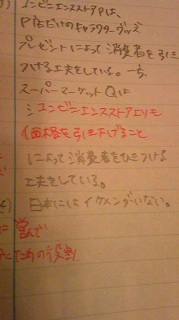 コンビニエンスストアPは、
P店だけのキャラクターグッズ
プレゼントによって消費者を引き
つける工夫をしている。一方、
スーパーマーケットQは
コンビニエンスストアよりも
価格を引き下げること
によって消費者をひきつける
工夫をしている。
日本にはイケメンがいない。
営んで
ための役割